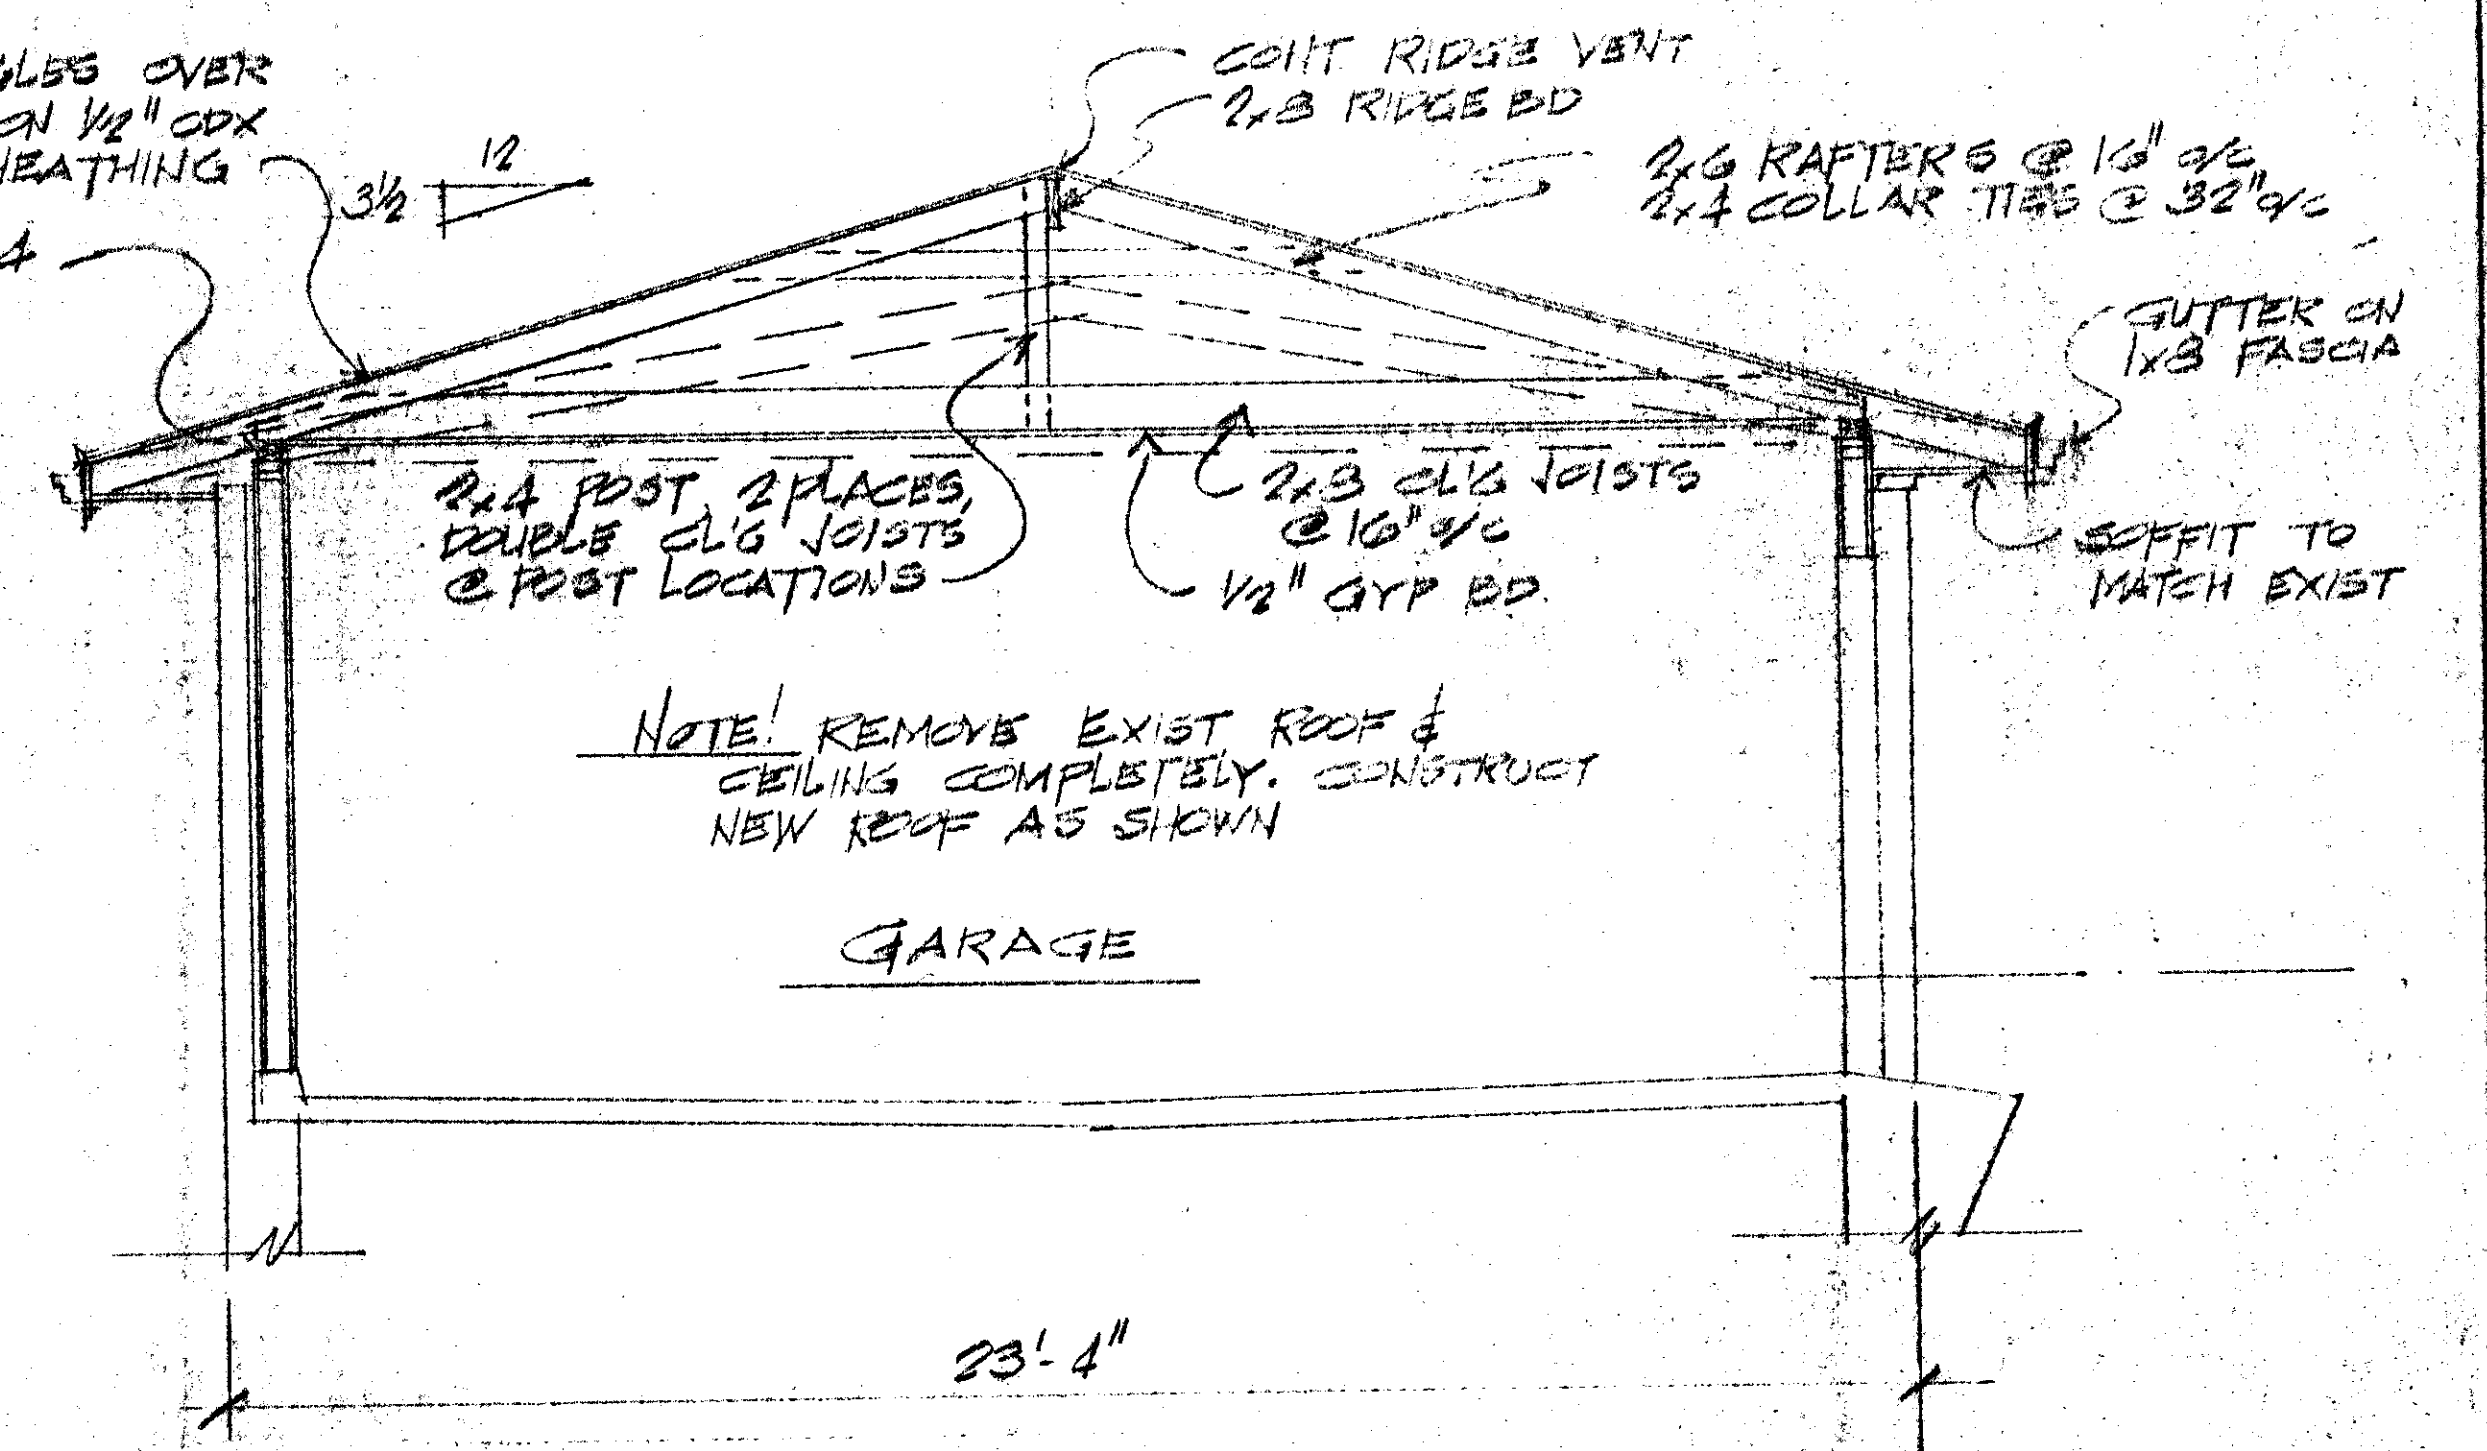 GLES OVER
ON 1/2" CDX
HEATHING
4
12
3 1/2
CONT RIDGE VENT
2x8 RIDGE BD
2x6 RAFTERS @ 16" o/c
2x4 COLLAR TIES @ 32" o/c
GUTTER ON
1x8 FASCIA
2x4 POST, 2 PLACES,
DOUBLE CL'G JOISTS
@ POST LOCATIONS
2x8 CL'G JOISTS
@ 16" o/c
1/2" GYP BD.
SOFFIT TO
MATCH EXIST
NOTE! REMOVE EXIST ROOF &
CEILING COMPLETELY. CONSTRUCT
NEW ROOF AS SHOWN
GARAGE
23'-4"